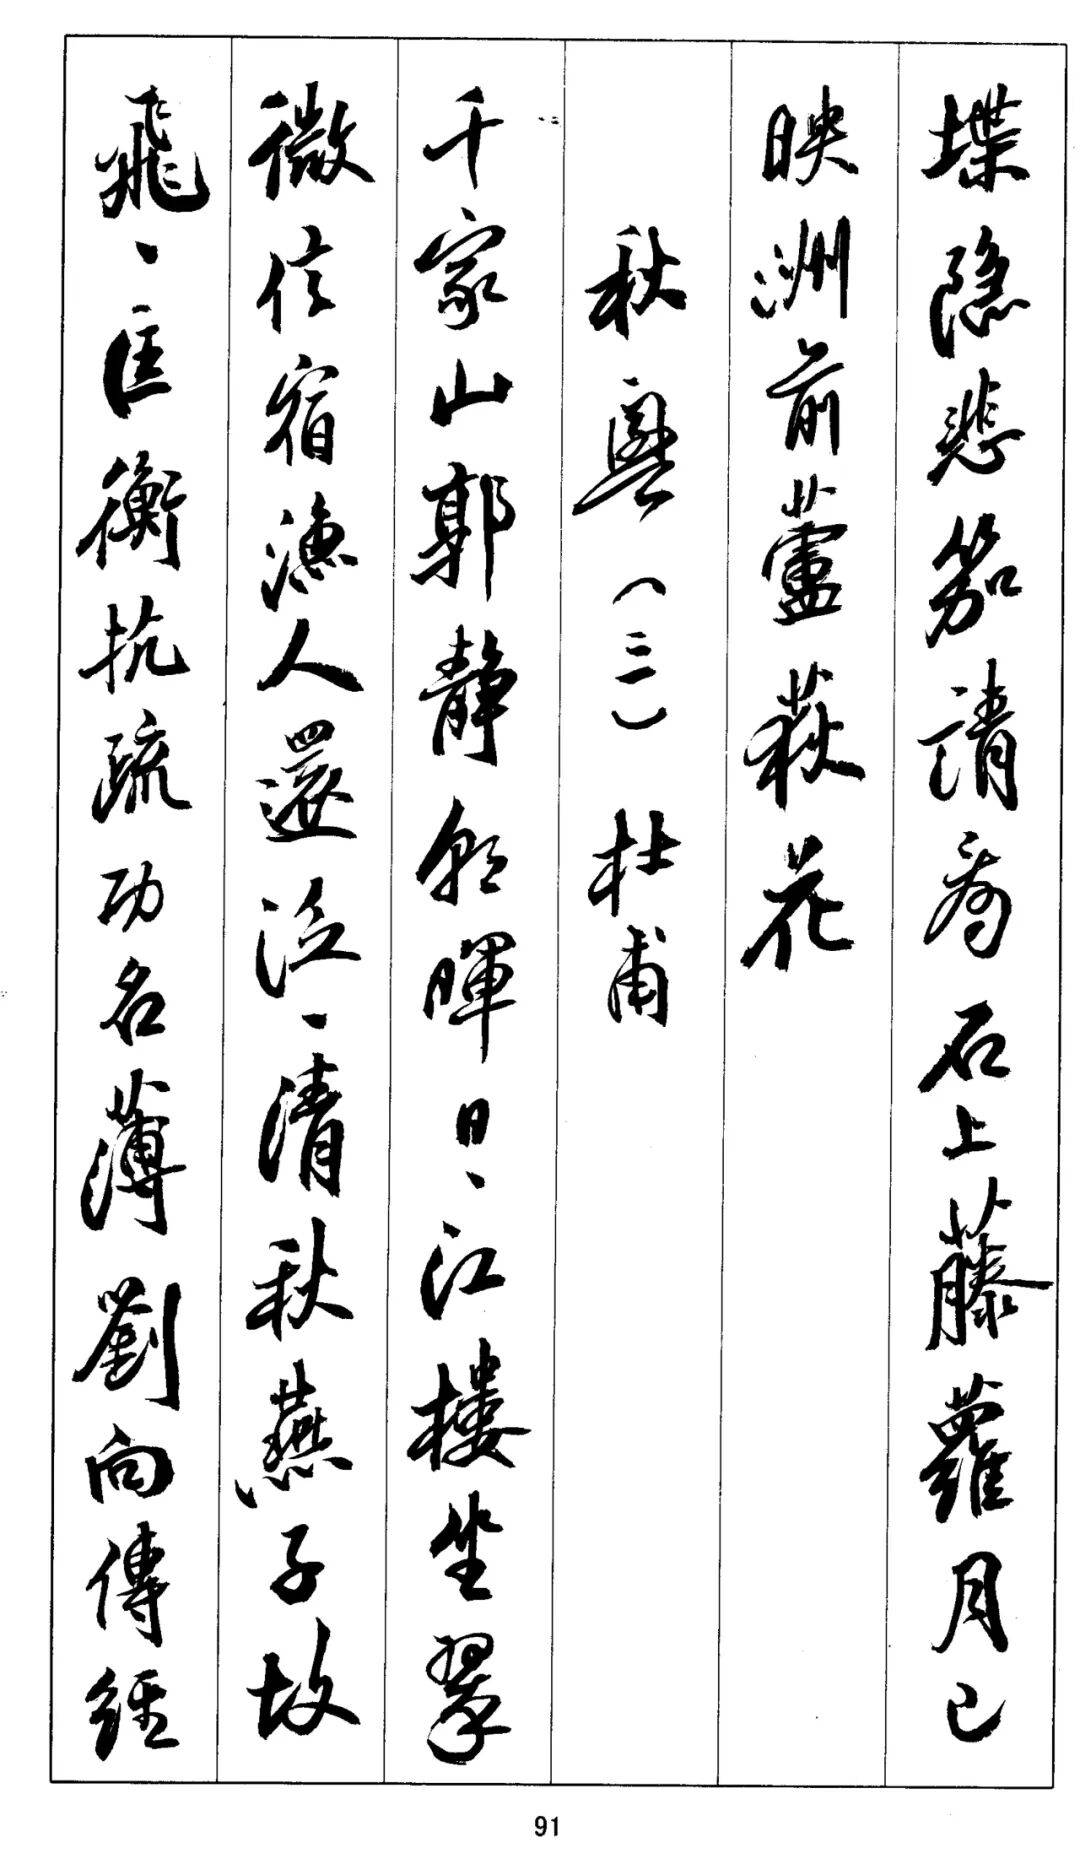 堞隐悲笳請看石上藤蘿月已
映洲前蘆荻花
秋興（三）杜甫
千家山郭靜朝暉日、江樓坐翠
微信宿漁人還泛、清秋燕子故
飛、匡衡抗疏功名薄劉向傳經
91